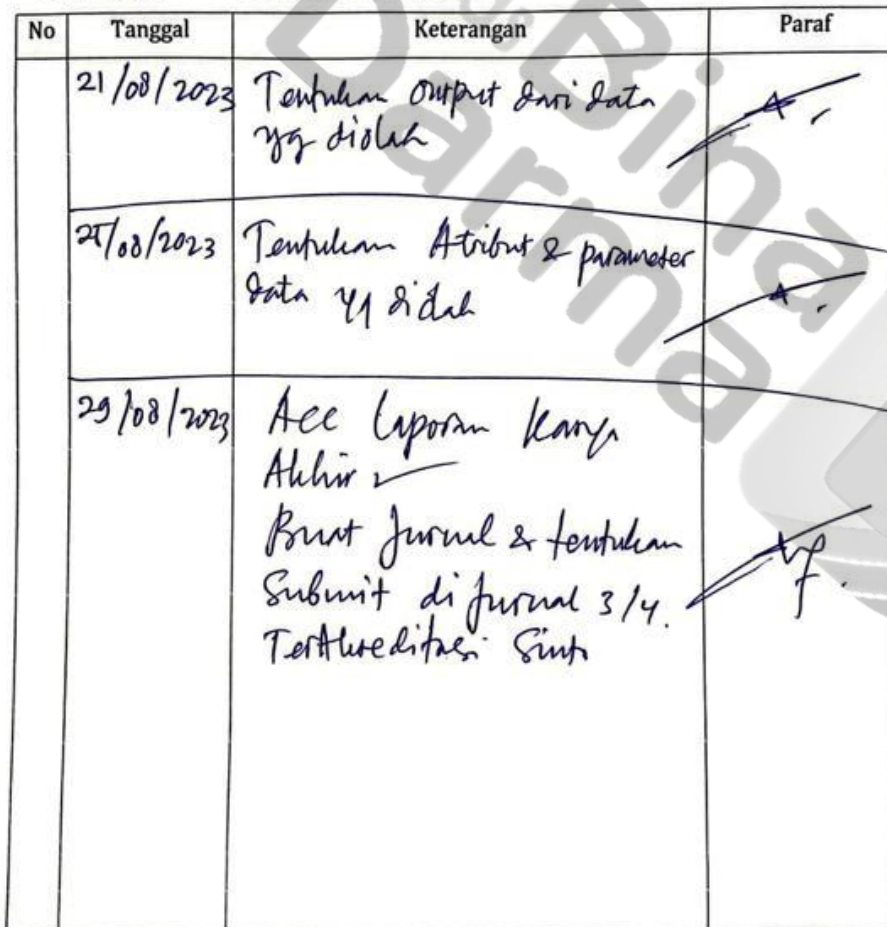 No Tanggal Keterangan Paraf
21/08/2023 Tentukan output dari data
yg diolah
25/08/2023 Tentukan Atribut & parameter
data yg diolah
29/08/2023 Acc Laporan Karya
Akhir
Buat Jurnal & tentukan
Submit di Jurnal 3/4.
TerAkreditasi Sinta
Bina
Darma